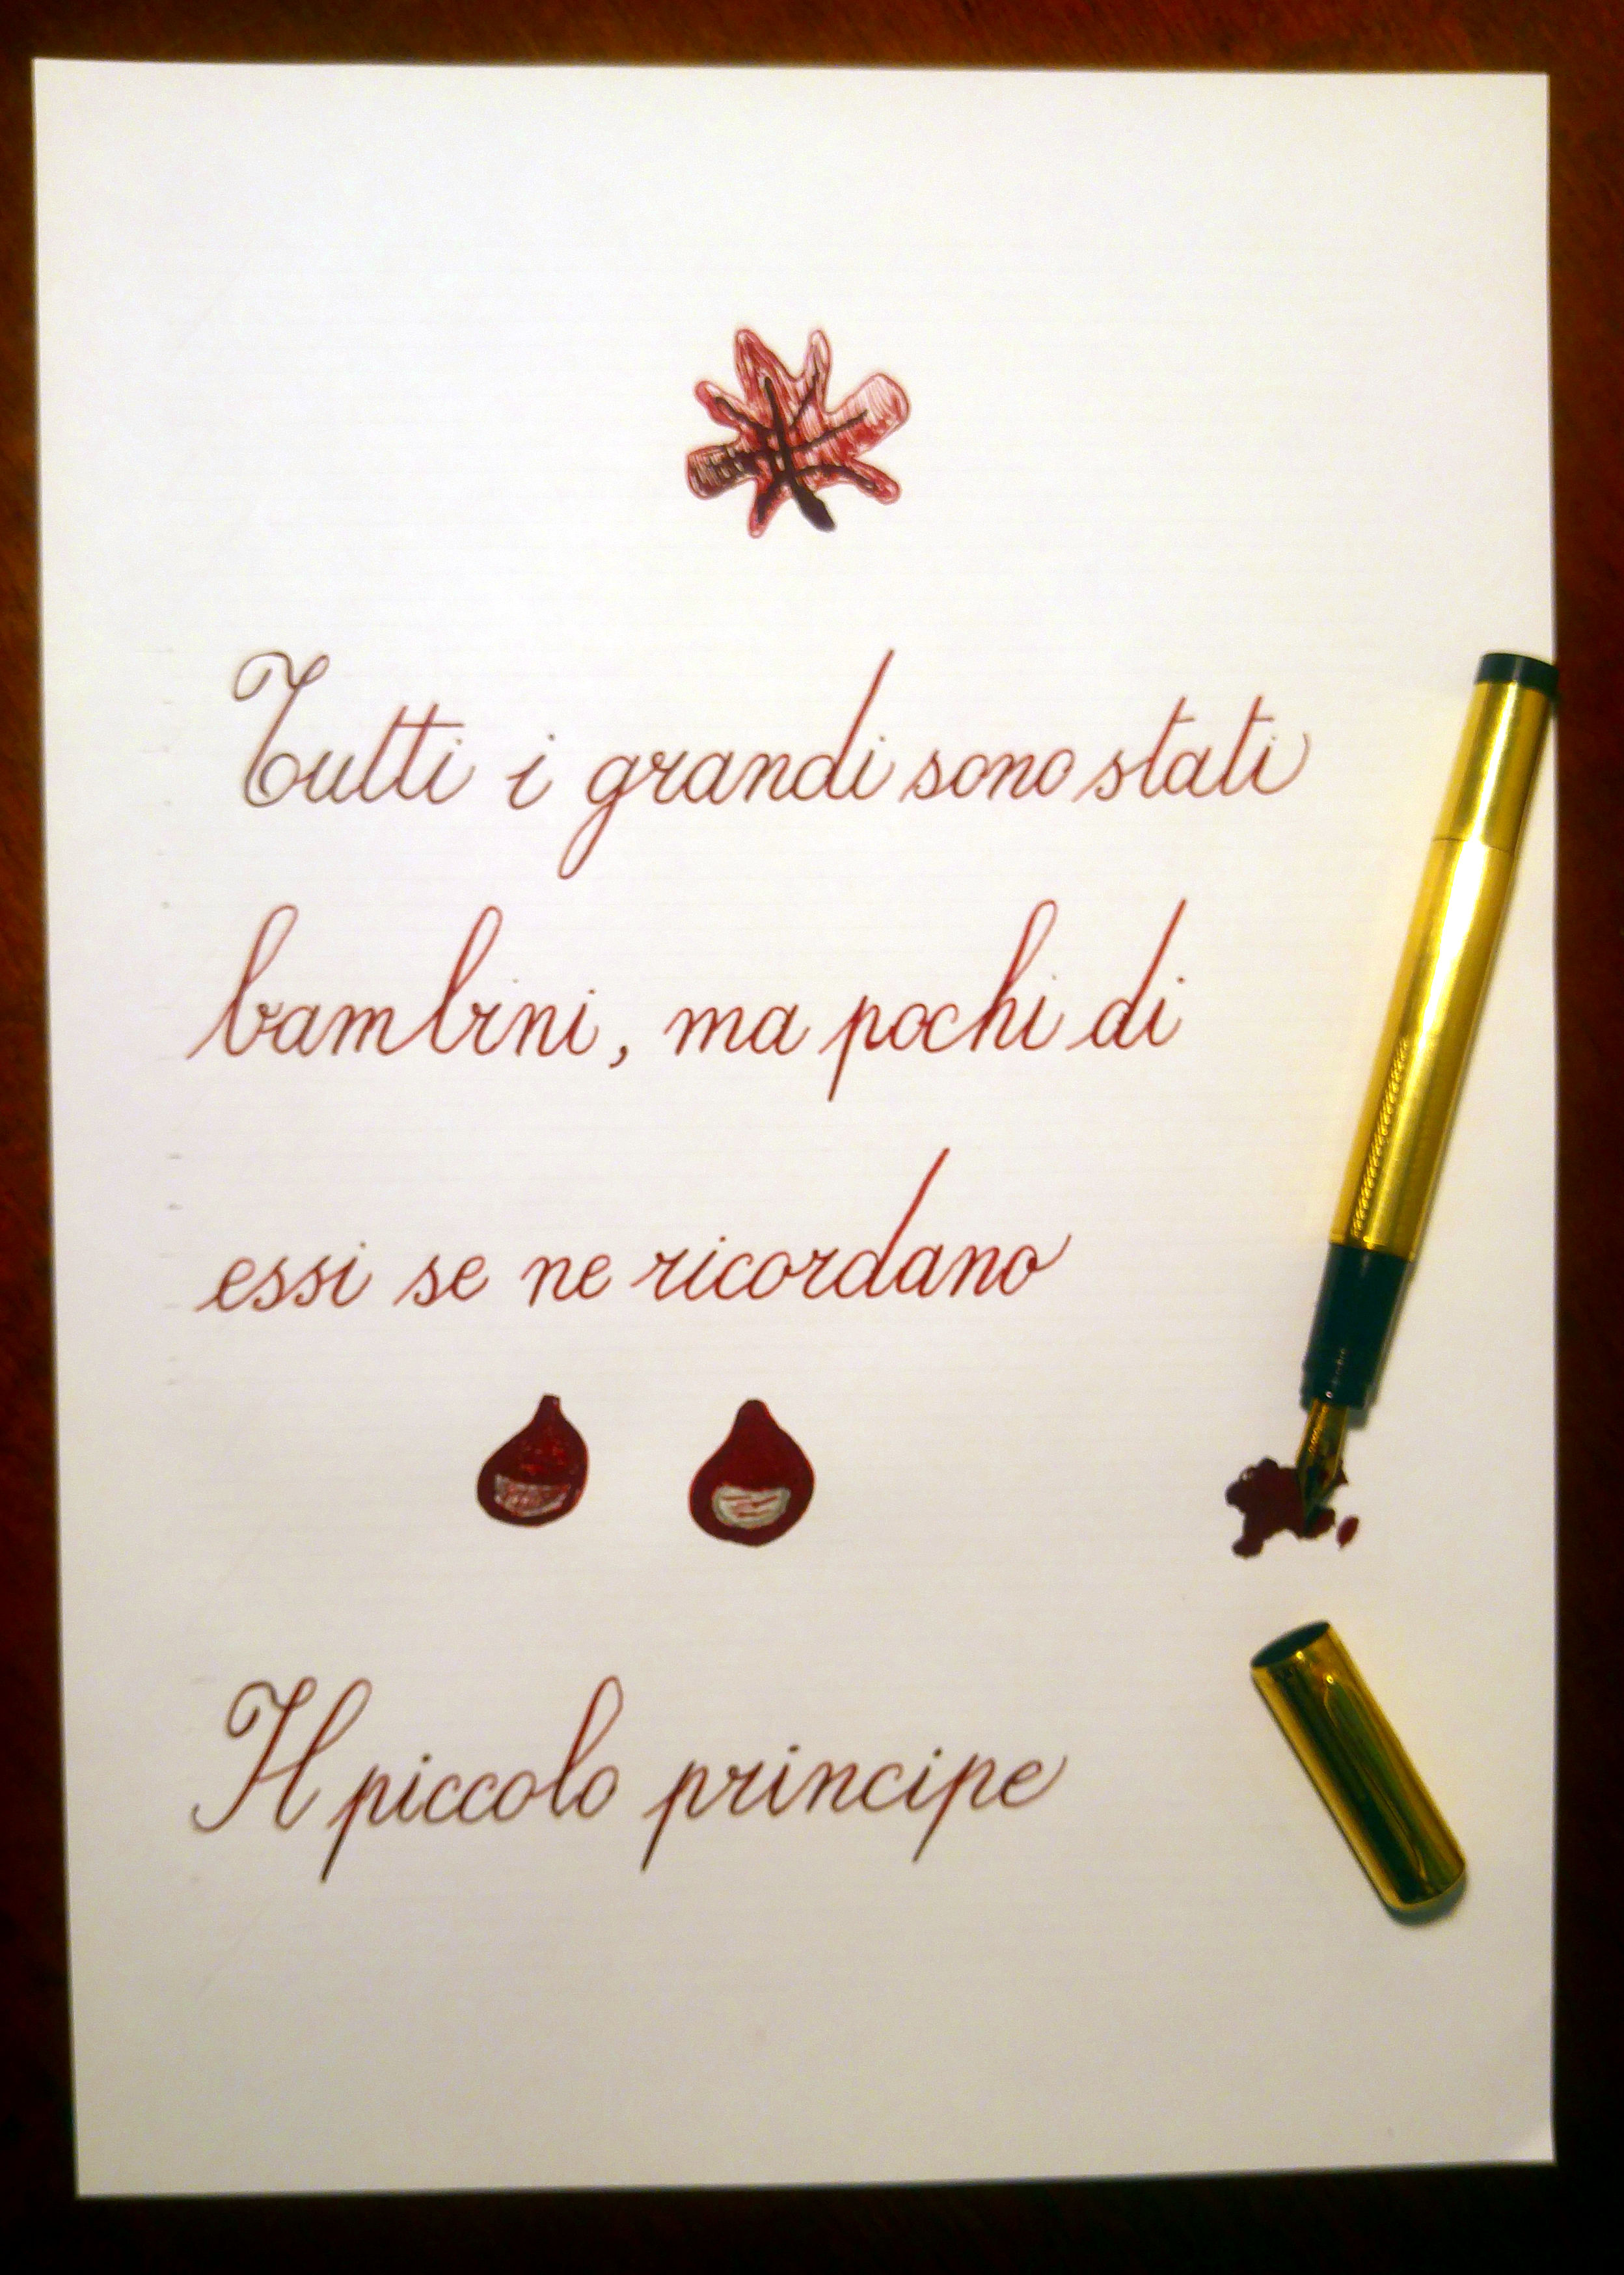 Tutti i grandi sono stati
bambini, ma pochi di
essi se ne ricordano
Il piccolo principe